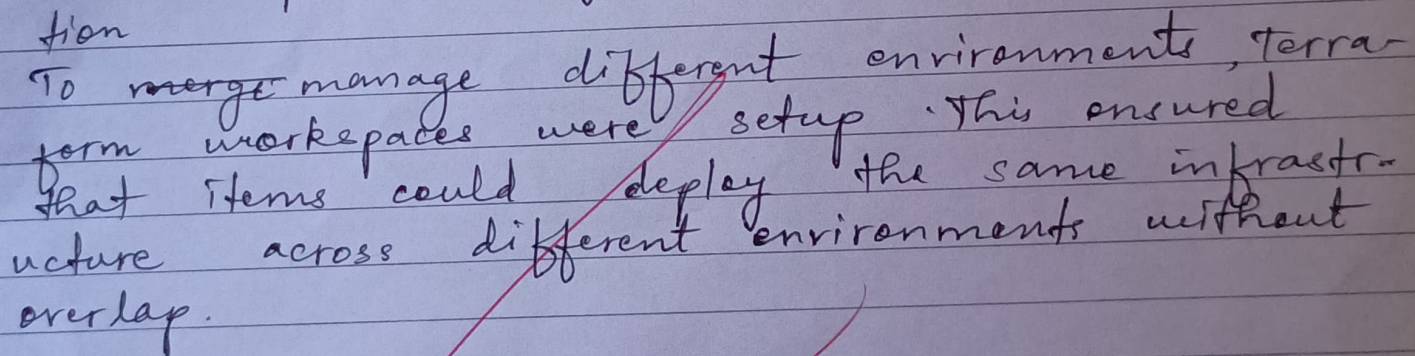 tion
To merge manage different environments, Terra-
form workspaces were setup. This ensured
that items could deploy the same infrastr-
ucture across different environments without
overlap.